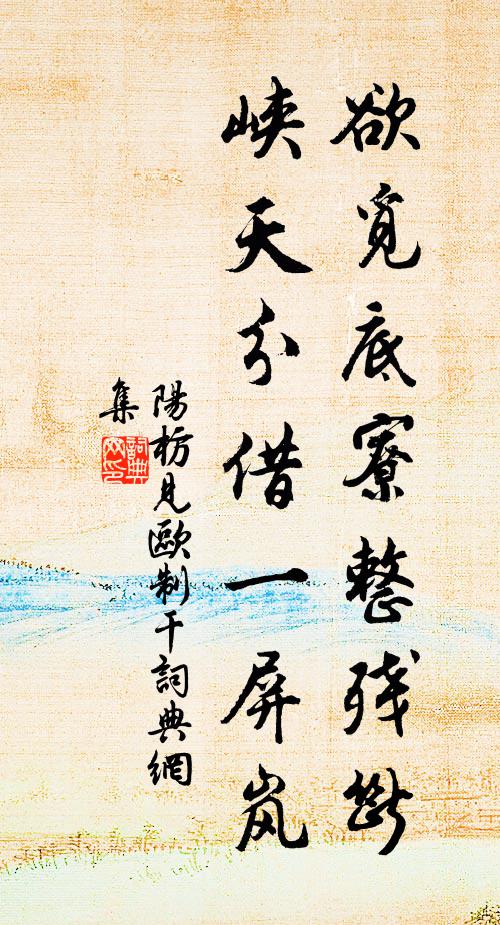 欲觅底寮整残断
峡天分借一屏岚
陽枋見歐制干詞典網
集
詞典
网印